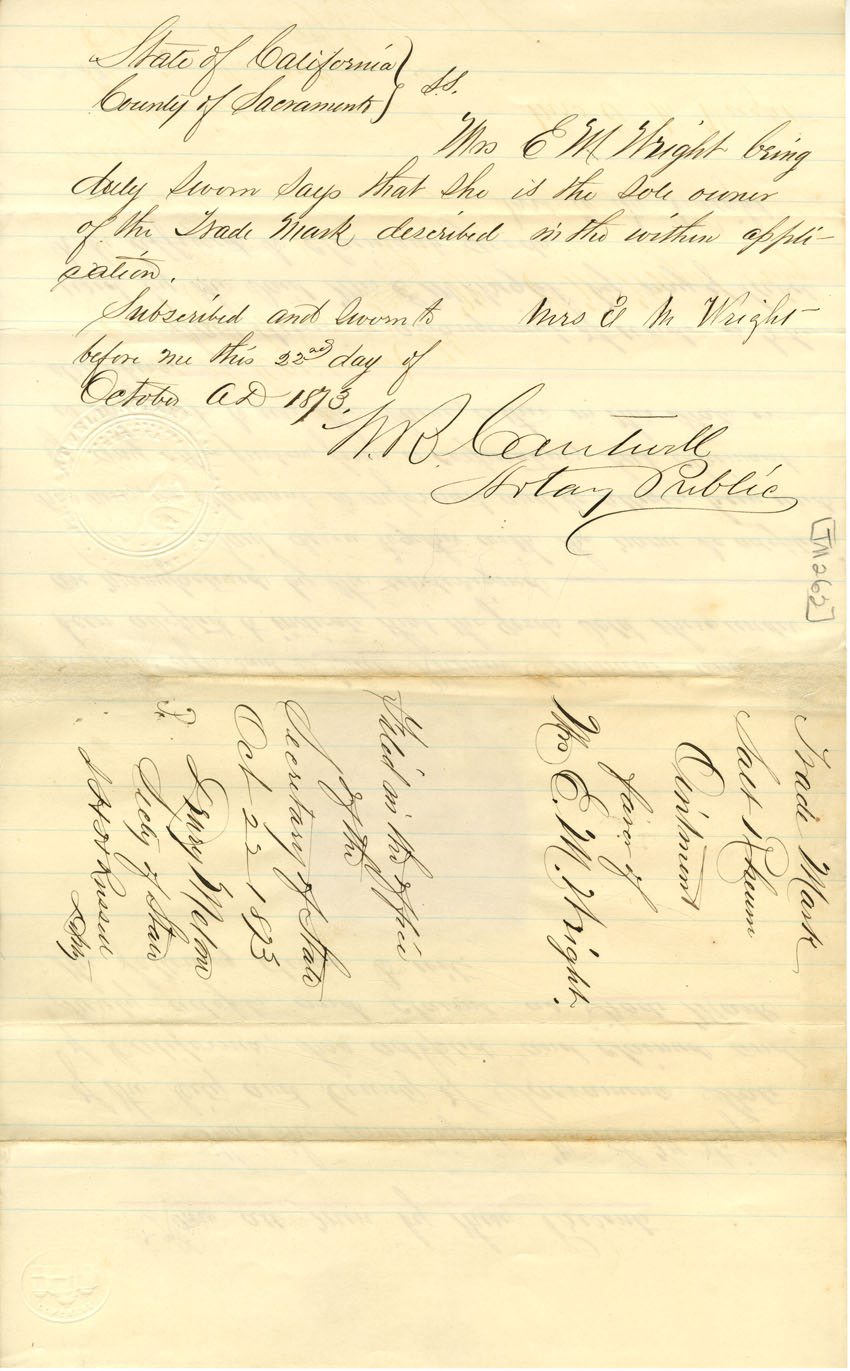 State of California
County of Sacramento } ss.
Mrs E M Wright being
duly sworn says that she is the sole owner
of the Trade Mark described in the within appli-
cation.
Subscribed and sworn to
Mrs E M Wright
before me this 22nd day of
October AD 1873.
W. B. Cantwell
Notary Public
[TM 262]
Trade Mark
Salt Rheum
Ointment
favor of
Mrs E. M. Wright.
Filed in the office
of the
Secretary of State
Oct 22 1873
Drury Melone
Secty of State
Russell
Depty